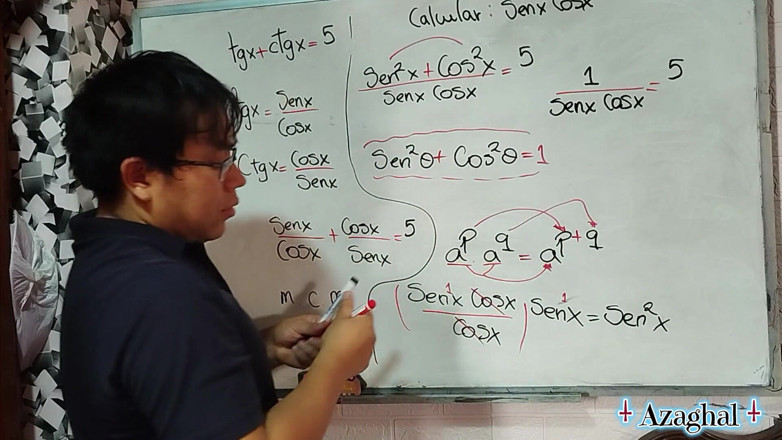 Calcular: Senx Cosx
tgx + ctgx = 5
tgx = Senx / Cosx
Ctgx = Cosx / Senx
Senx / Cosx + Cosx / Senx = 5
m c
Sen²x + Cos²x / Senx Cosx = 5
1 / Senx Cosx = 5
Sen²θ + Cos²θ = 1
a^p . a^q = a^p+q
(Sen¹x Cosx / Cosx) Sen¹x = Sen²x
Azaghal